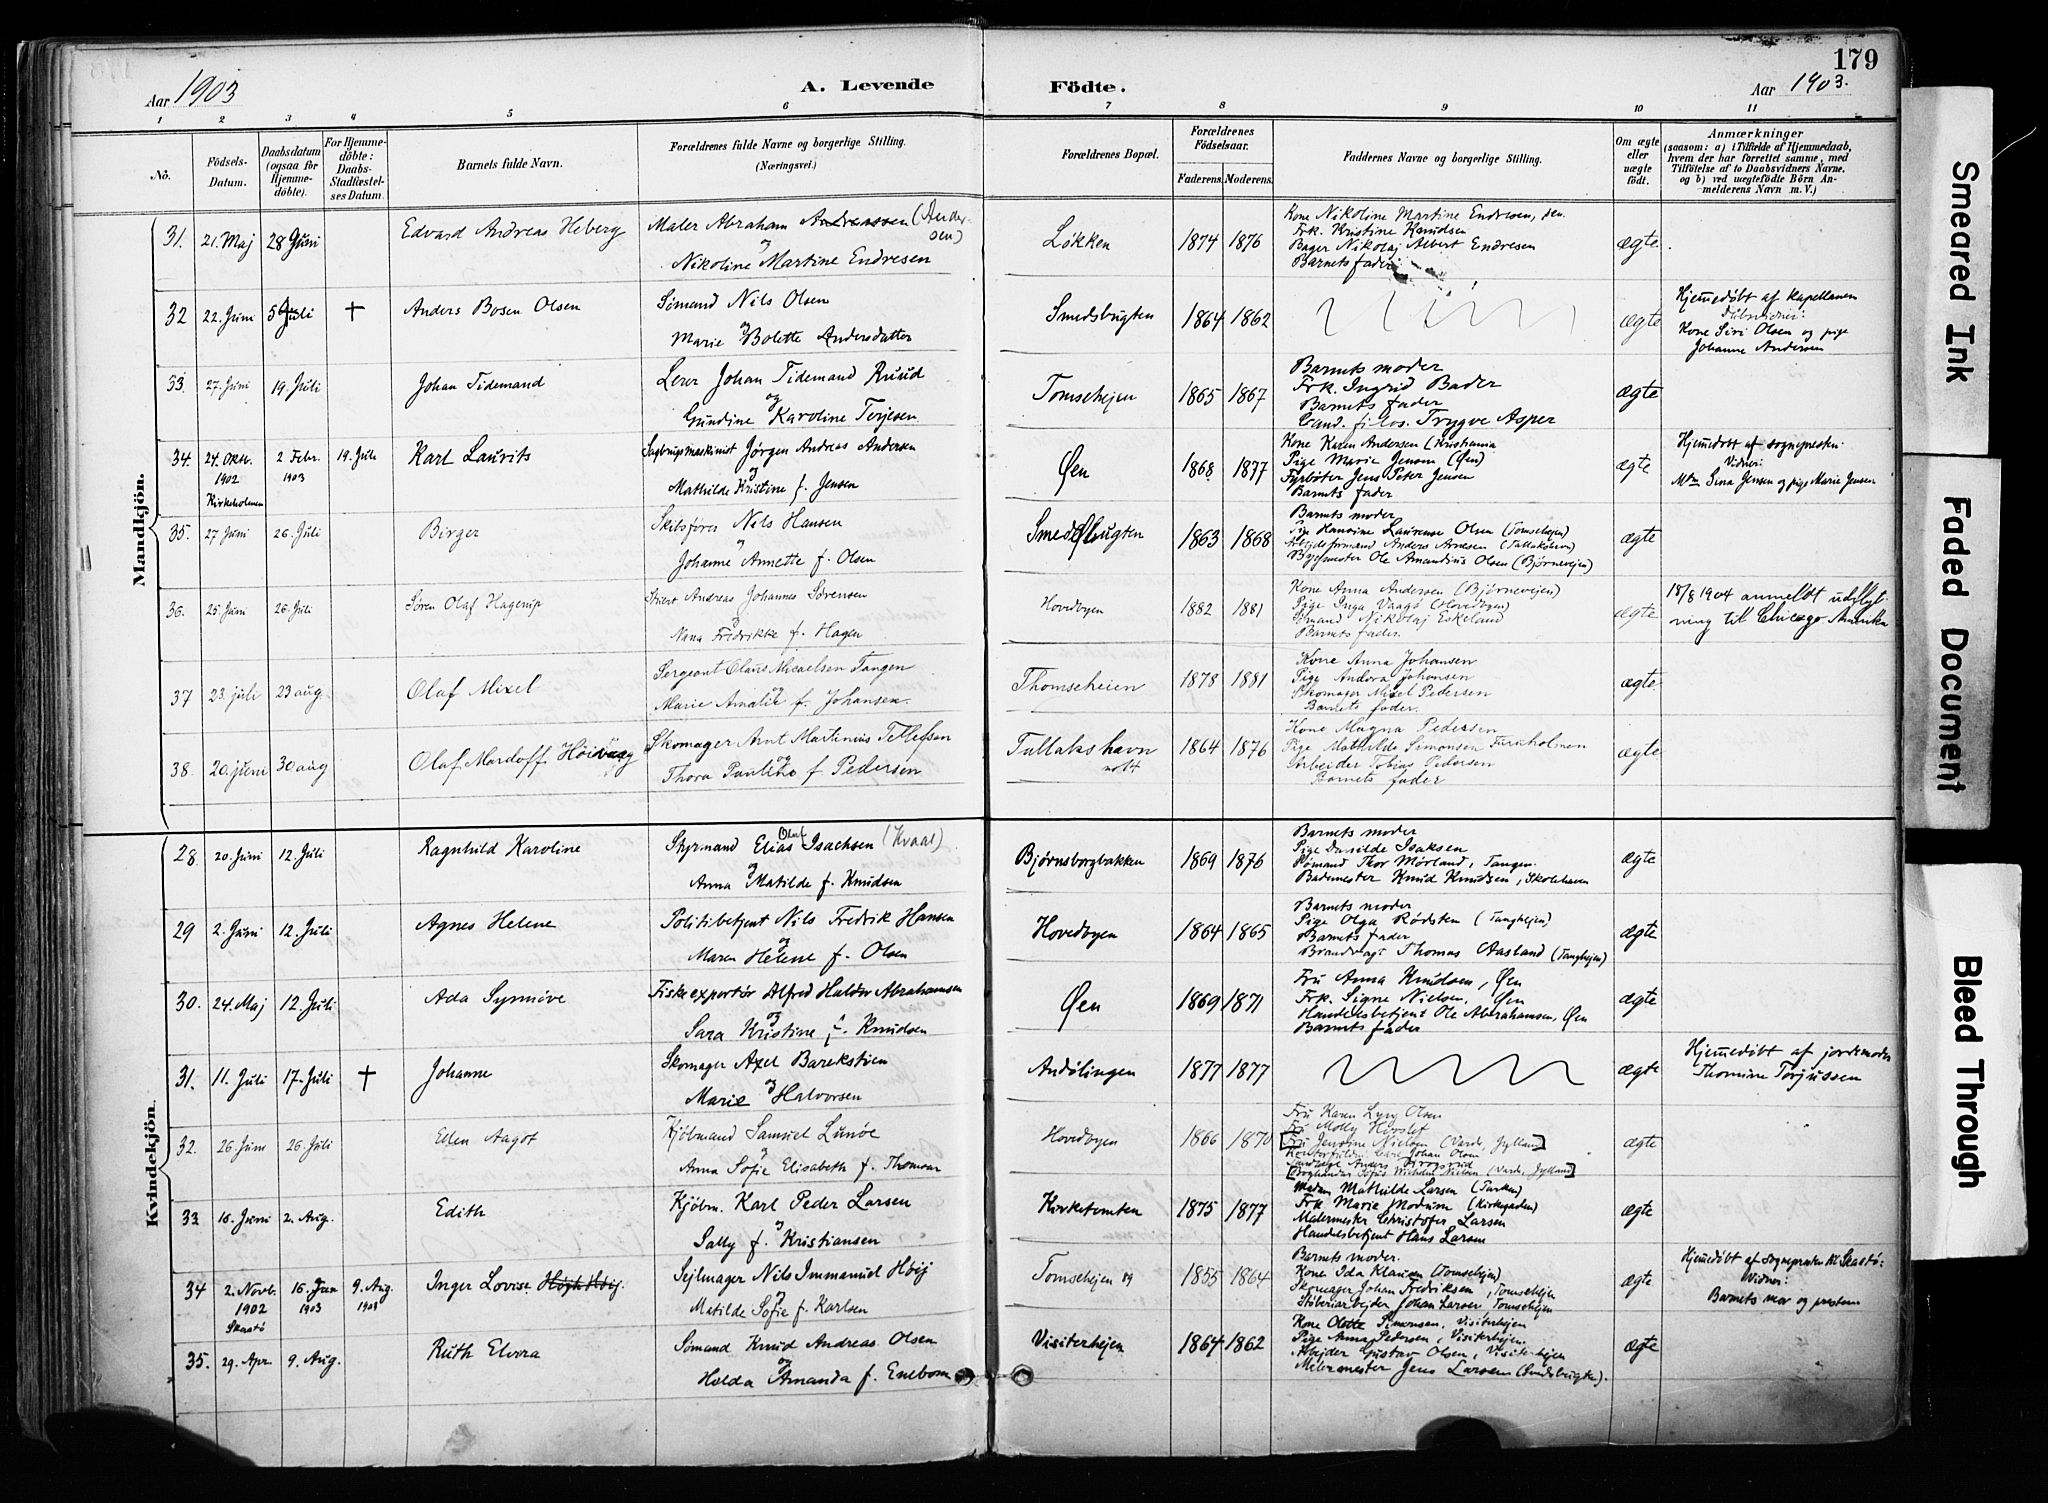 179
Aar 1903
A. Levende
Födte.
Aar 1903.
1 2 3 4 5 6 7 8 9 10 11
No.
Födsels-Datum.
Daabsdatum (ogsaa for Hjemme-döbte).
For Hjemme-döbte: Daabs-Stadfæstel-ses Datum.
Barnets fulde Navn.
Forældrenes fulde Navne og borgerlige Stilling.
(Næringsvei.)
Forældrenes Bopæl.
Forældrenes Födselsaar.
Faderens. Moderens.
Faddernes Navne og borgerlige Stilling.
Om ægte eller uægte födt.
Anmærkninger
(saasom: a) i Tilfælde af Hjemmedaab,
hvem der har forrettet samme, med
Tilföielse af to Daabsvidners Navne,
og b) ved uægtefödte Börn An-
melderens Navn m. V.)
Mandkjön.
31. 21. Maj 28 Juni Edvard Andreas Heberg
Maler Abraham Andreassen (Ander-
sen)
og
Nikoline Martine Endresen
Løkken 1874 1876
Kone Nikoline Martine Endresen, sen.
Frk. Kristine Knudsen
Bager Nikolaj Albert Endresen
Barnets fader
ægte.
32 22. Juni 5 Juli + Anders Bosen Olsen
Sømand Nils Olsen
og
Marie Bolette Andersdatter
Smedsbugten 1864 1862
ægte
Hjemmedøbt af kapellanen
Kone Siri Olsen og pige
Johanne Andersen
33. 27. Juni 19. Juli Johan Tidemand
Lærer Johan Tidemand Ruud
og
Gundine Karoline Terjesen
Tomsehejen 1865 1867
Barnets moder
Frk. Ingrid Bader
Barnets fader
Cand. filos. Trygve Asper
ægte
34. 24. Okt. 1902 2 Febr. 1903 19. Juli Karl Laurits
Kirkeholmen
Sagbrugsmaskinist Jørgen Andreas Andersen
og
Mathilde Kristine f. Jensen
Øen 1868 1877
Kone Karen Andersen (Kristiania
Pige Marie Jensen (Øen)
Fyrbøter Jens Peter Jensen
Barnets fader
ægte
Hjemmedøbt af sognepresten.
Vidner:
Sina Jensen og pige Marie Jensen
35. 27 Juni 26. Juli Birger
Nils Hansen
og
Johanne Annette f. Olsen
Smedsbugten 1863 1868
Barnets moder
Pige Hansine Laurense Olsen (Tomsehejen)
Anders Arnesen
Bygmester Ole Amandius Olsen (Bjørnevejen)
ægte
36. 25. Juni 26. Juli Søren Olaf Hagerup
Andreas Johannes Sørensen
og
Nana Fredrikke f. Hagen
Hovedbyen 1882 1881
Kone Anna Andersen (Bjørnevejen)
Pige Inga Vaagø (Hovedbyen)
Sømand Nikolaj Eskeland
Barnets fader.
ægte
18/8 1904 anmeldt udflyt-
ning til Chicago. Amerika
37 23. juli 23 aug Olaf Mixel
Sergeant Olaus Micaelsen Tangen
og
Marie Amalie f. Johansen.
Thomseheien 1878 1881
Kone Anna Johansen
Pige Andora Johansen
Skomager Mixel Pedersen
Barnets fader.
ægte
38. 20. juni 30 aug Olaf Mardoff Höivaag
Skomager Arnt Martinius Tellefsen
og
Thora Pauline f Pedersen
Tallakshavn 1864 1876
Kone Magna Pedersen
Pige Mathilde Simonsen Furuholmen
Arbeider Tobias Pedersen
Barnets fader
ægte
Kvindekjön.
28. 20. Juni 12. Juli Ragnhild Karoline
Styrmand Elias Olaf Isachsen (Kvaal)
og
Anna Matilde f. Knudsen
Bjørnsborgbakken 1869 1876
Barnets moder
Pige Danilde Isaksen
Sømand Thor Mørland, Tangen.
Bademester Knud Knudsen, Skolehaven
ægte
29 2. Juni 12. Juli Agnes Helene
Politibetjent Nils Fredrik Hansen
og
Maren Helene f. Olsen
Hovedbyen 1864 1865
Barnets moder
Pige Olga Rødsten (Tanghejen)
Barnets fader
Brandvagt Thomas Aasland (Tanghejen)
ægte
30. 24. Maj 12. Juli Ada Synnøve
Fiskeexportør Alfred Haldor Abrahamsen
og
Sara Kristine f. Knudsen
Øen 1869 1871
Fru Anna Knudsen, Øen
Frk. Signe Nielsen, Øen
Handelsbetjent Ole Abrahamsen, Øen
Barnets fader
ægte
31. 11. Juli 17. Juli + Johanne
Skomager Axel Barekstien
og
Marie Halvorsen
Andølingen 1877 1877
ægte
Hjemmedøbt af jordemoder
Thomine Torjussen
32. 26. Juni 26. Juli Ellen Aagot
Kjöbmand Samuel Lunöe
og
Anna Sofie Elisabeth f. Thomsen
Hovedbyen 1866 1870
Fru Karen Lyng Olsen
Fru Molly
Fru Jensine Nielsen (Varde, Jylland)
Carl Johan Olsen
Anders
Sofus Wilhelm Nielsen (Varde, Jylland)
ægte
33 16. Juni 2. Aug. Edith
Kjöbm. Karl Peder Larsen
og
Sally f. Kristiansen
Kirketomten 1875 1877
Madam Mathilde Larsen
Frk Marie Modum (Kirkegaden)
Malermester Christofer Larsen
Handelsbetjent Hans Larsen
ægte
34 2. Novb. 1902 16. Jan 1903 9. Aug. 1903 Inger Lovise Høgh Høij.
Skaatø
Sejlmager Nils Immanuel Höij
og
Matilde Sofie f. Karlsen
Tomsehejen 1855 1864
Barnets moder.
Kone Ida Klausen (Tomsehejen)
Skomager Johan Fredriksen, Tomsehejen
Støberiarbejder Johan Larsen Tomsehejen
ægte
Hjemmedøbt af sognepresten til Skaatø:
Vidner:
Barnets mor og presten
35. 29. Apr. 9. Aug. Ruth Elvira
Sømand Knud Andreas Olsen
og
Holda Amanda f. Enebom
Visiterhejen 1864 1862
Kone Olette Simonsen, Visiterhejen
Pige Anna Pedersen, Visiterhejen
Arbejder Gustav Olsen, Visiterhejen
Malermester Jens Larsen (Smedsbugten).
ægte
Smeared Ink
Faded Document
Bleed Through